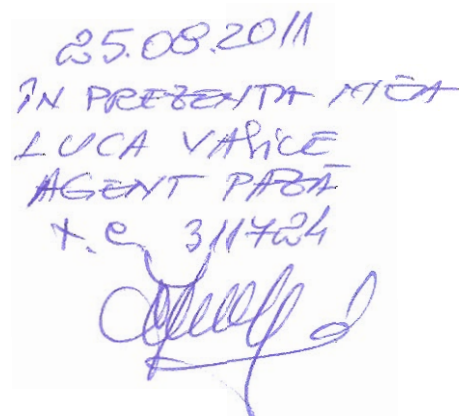 25.08.2011
ÎN PREZENTA MEA
LUCA VASILE
AGENT PAZĂ
X.C. 311724